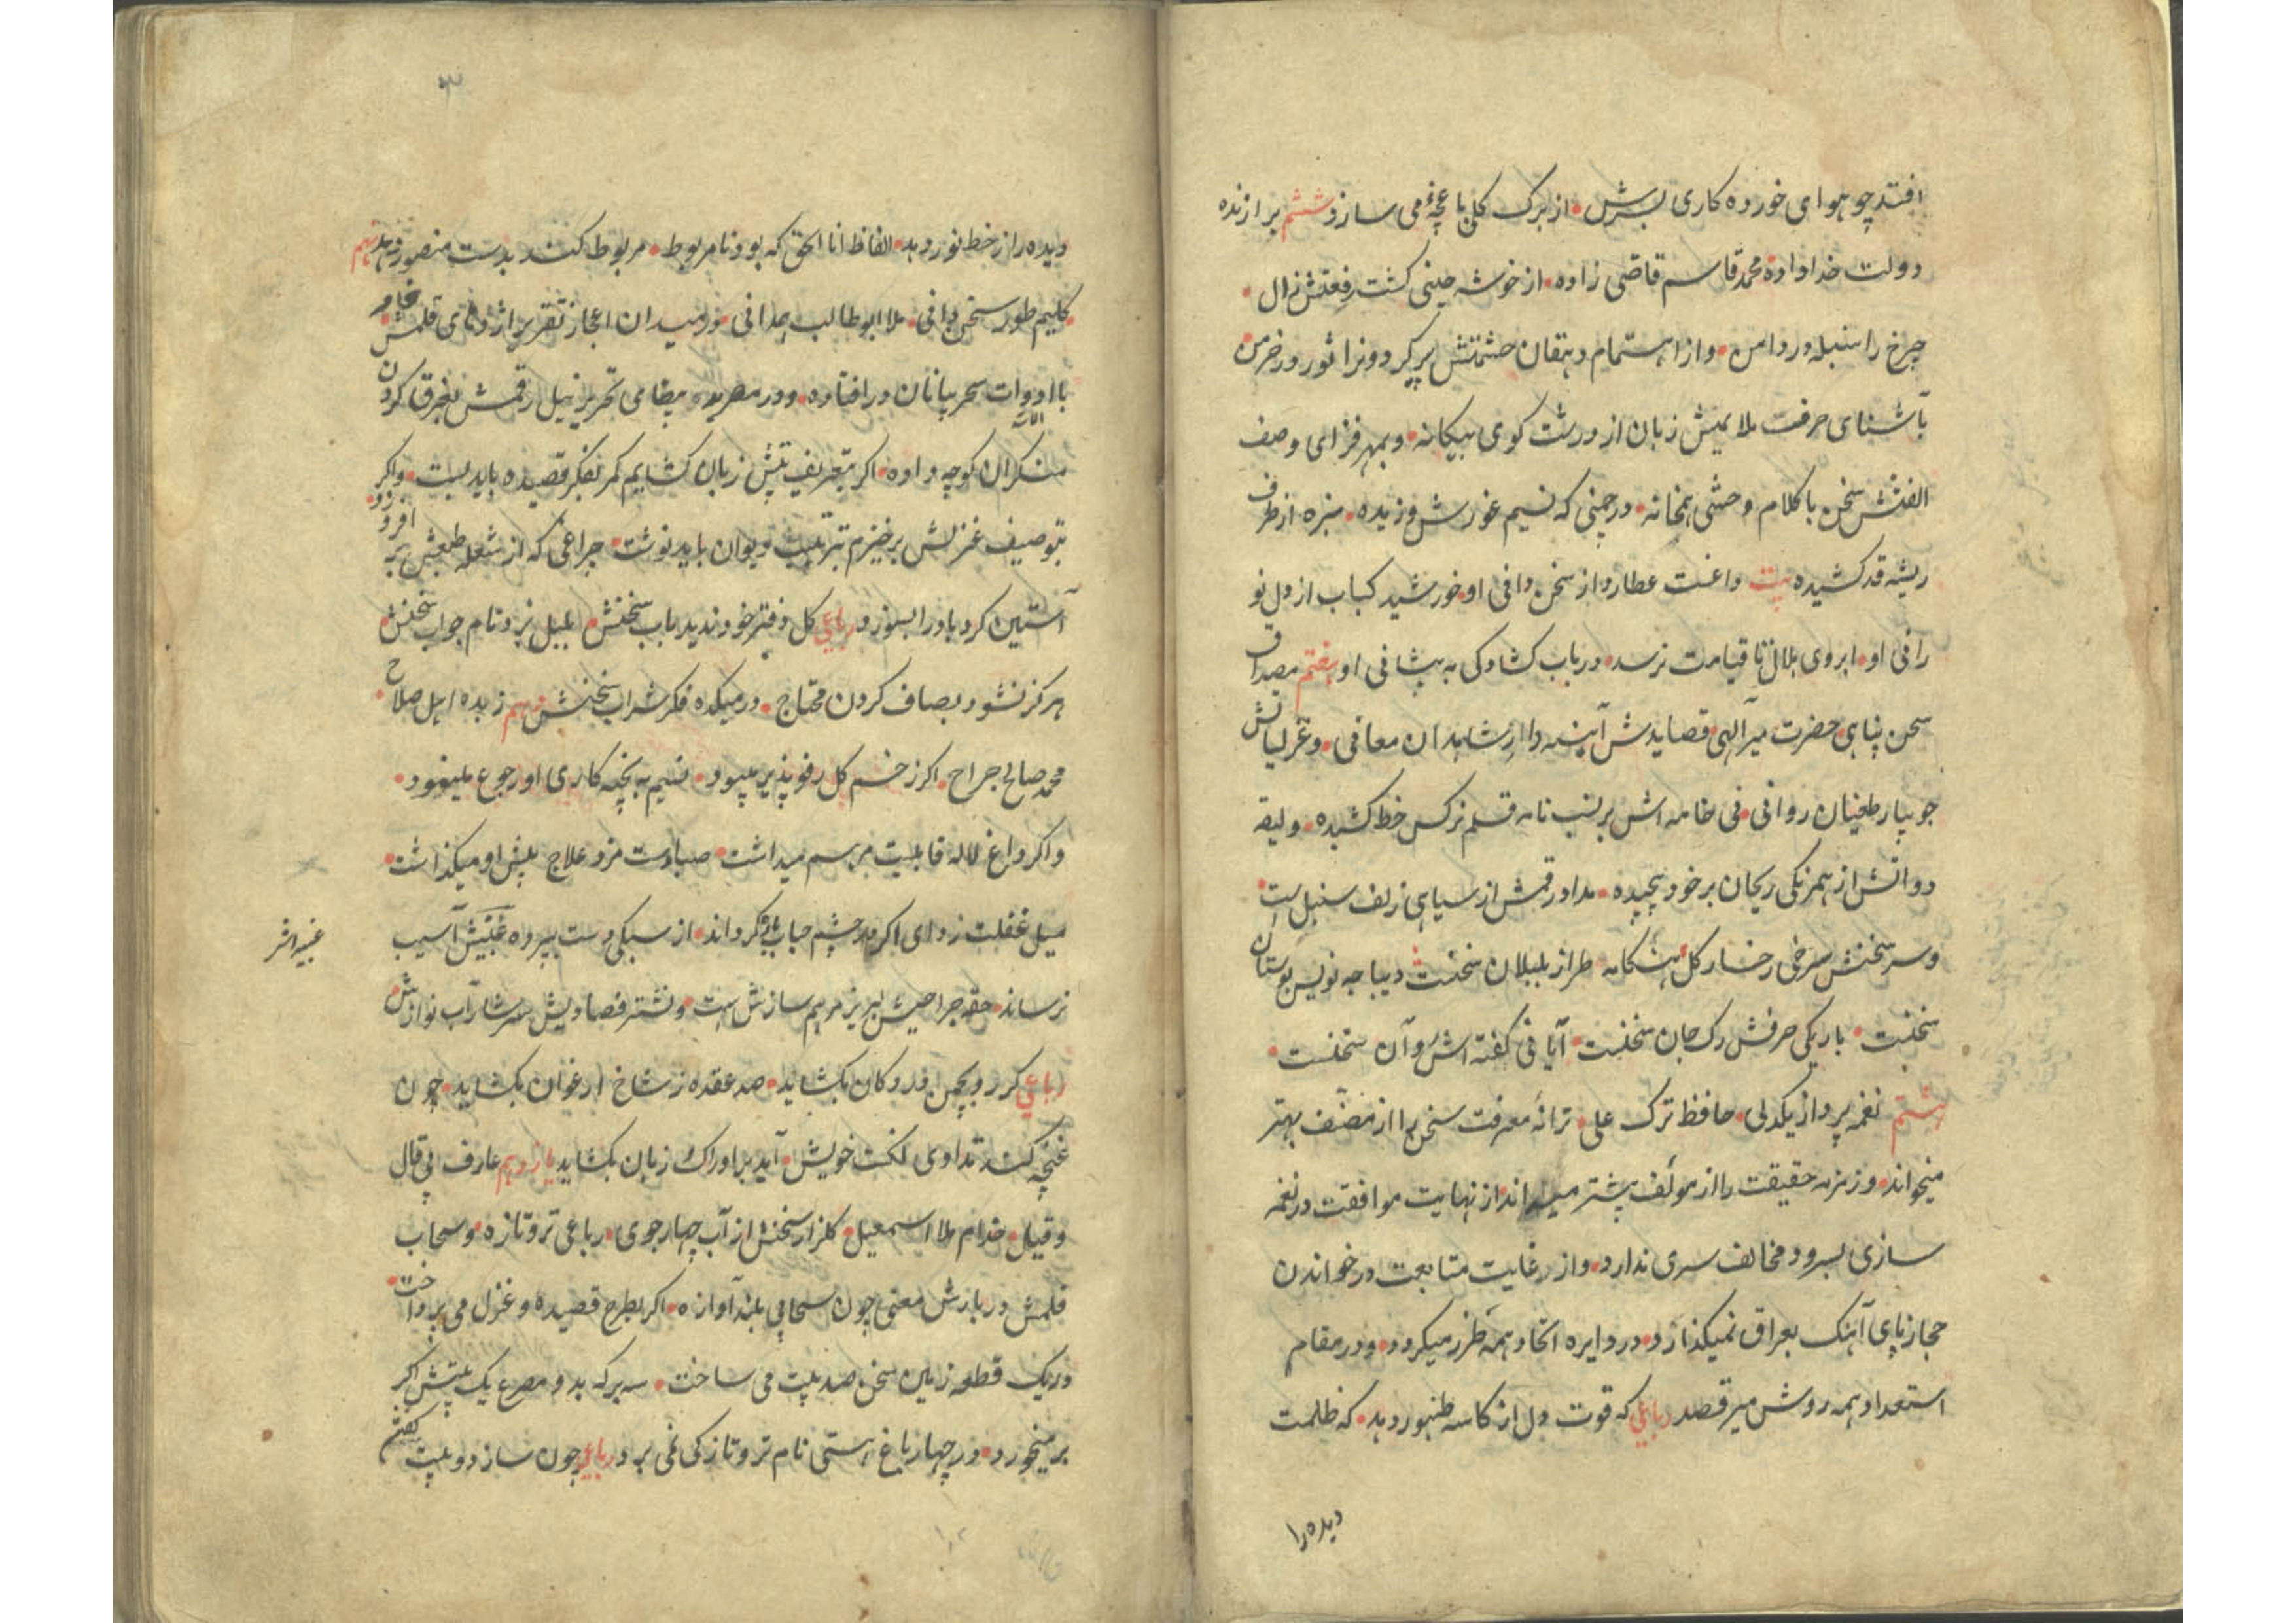 افتد چو هوای خورده کاری بسرش • از برک کل باغچهٔ می سازد ششم برازنده
دولت خداداده محمد قاسم قاضی زاده • از خوشه چینی کشت رفعتش زال •
چرخ را سنبله در دامن • و از اهتمام دهقان حشمتش پیر کردونرا ثور در خرمن
بآشنای حرفت ملایمیش زبان از درشت کوی بیکانه • و بمهر فزای وصف
الفتش سخن با کلام وحشی همخانه • در چمنی که نسیم غورش وزیده • سبزه از طرف
ریشه قد کشیده بیت داغست عطارد از سخن دانی او • خورشید کباب از دل نو
رانی او • ابروی هلال تا قیامت نرسد • در باب کشادکی به پیشانی او هفتم مصداق
سخن پناهی • حضرت میرآلهی • قصایدش آینه دار شاهدان معانی • و غزلیاتش
جویبار طغیان روانی • نی خامه اش بر نسب نامه قلم نرکس خط کشیده • و لیقه
دواتش از همرنکی ریحان برخود پیچیده • مداد رقمش از سیاهی زلف سنبل است •
و سر سخنش سرخی رخسار کل • هنکامه طراز بلبلان سخنست دیباجه نویس بوستان
سخنست • باریکی حرفش رک جان سخنست • آیا فی کفته اش و آن سخنست •
هشتم نغمه پرداز یکدلی • حافظ ترک علی • ترانهٔ معرفت سخن را از مصنف بهتر
میخواند • و زمزمه حقیقت را از مولف پیشتر میداند از نهایت موافقت در نغمه
سازی بسرود مخالف سری ندارد • و از رغایت متابعت در خواندن
حجاز پای آهنک بعراق نمیکذارد • در دایره اتحاد همه طرز میکردد • و در مقام
استعداد همه روش میرقصد رباعی که قوت دل از کاسه طنبور دهد • که ظلمت
دیده را
دیده را از خط نور دهد • الفاظ انا الحق که بود نامربوط • مربوط کند بدست منصور دهد نهم
کلیم طور سخن دانی • ملا ابوطالب همدانی • در میدان اعجاز تقریر اژدهای قلمش
با ادوات سحر بیانان در افتاده • و در مصر ید بیضای تحریر نیل رقمش بغرق کردن
منکران کوچه داده • اکر بتعریف بیتش زبان کشایم کمر بفکر قصیده باید بست • و اکر
بتوصیف غزلش برخیزم بترتیب دیوان باید نوشت • چراغی که از شعله طبعش بر افروزد •
آستین کرد باد را بسوزد رباعی کل دفتر خود ندید باب سخنش • بلبل نبرد نام جواب سخنش •
هرکز نشود بصاف کردن محتاج • در میکده فکر شراب سخنش دهم زبده اهل صلاح •
محمد صالح جراح • اکر زخم کل رفو پذیر میبود • نسیم به بخیه کاری او رجوع مینمود •
و اکر داغ لاله قابلیت مرهم میداشت • صبا دست مزد علاج پیش او میکذاشت •
میل غفلت زدای اکر در چشم حباب کرداند • از سبکی دست بپرده عنبیش آسیب
عنبیه اش
نرساند • حقه جراحیش لبریز مرهم سازش است • و نشتر فصادیش سرشار آب نوازش •
رباعی کر رو بچمن در دکان بکشاید • صد عقده ز شاخ ارغوان بکشاید • چون
غنچه کند تداوی لکنت خویش • آید بر ادراک زبان بکشاید یازدهم عارف بی قال
و قیل • خدام ملا اسمعیل • کلزار سخنش از آب چهار جوی • رباعی تر و تازه • و سحاب
قلمش در بارش معنی چون سحابی بلند آوازه • اکر بطرح قصیده و غزل می پرداخت •
در یک قطعه زمین سخن صد بیت می ساخت • سه برکه بدو مصرع یک بیتش اکر
بر میخورد • در چهار باغ هستی نام تر و تازکی نمی برد رباعی چون ساز دو بیت کفتن